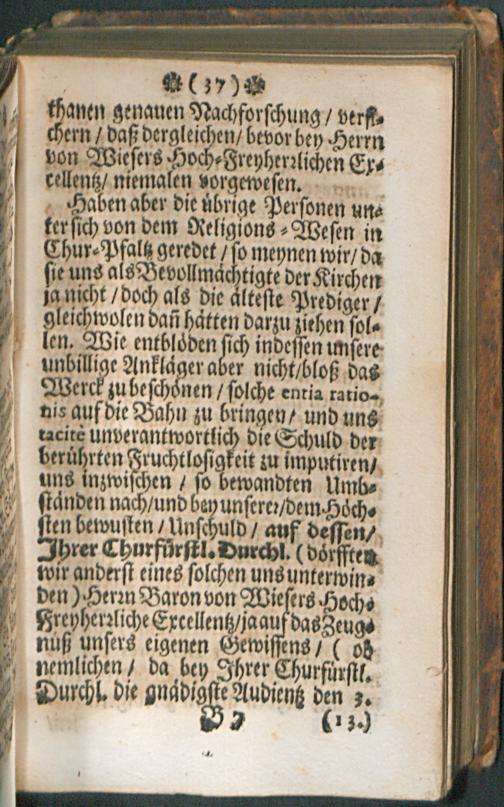 ❀(37)❀
thanen genauen Nachforschung / versi-
chern / daß dergleichen / bevor bey Herrn
von Wiesers Hoch-Freyherrlichen Ex-
cellentz / niemalen vorgewesen.
Haben aber die übrige Personen un-
ter sich von dem Religions-Wesen in
Chur-Pfaltz geredet / so meynen wir / da
sie uns als Bevollmächtigte der Kirchen
ja nicht / doch als die älteste Prediger /
gleichwolen dañ hätten darzu ziehen sol-
len. Wie entblöden sich indessen unsere
unbillige Ankläger aber nicht / bloß das
Werck zu beschönen / solche entia ratio-
nis auf die Bahn zu bringen / und uns
tacitè unverantwortlich die Schuld der
berührten Fruchtlosigkeit zu imputiren /
uns inzwischen / so bewandten Umb-
ständen nach / und bey unserer / dem Höch-
sten bewusten / Unschuld / auf dessen /
Ihrer Churfürstl. Durchl. (dörfften
wir anderst eines solchen uns unterwin-
den) Herrn Baron von Wiesers Hoch-
Freyherrliche Excellentz / ja auf das Zeug-
nuß unsers eigenen Gewissens / (ob
nemlichen / da bey Ihrer Churfürstl.
Durchl. die gnädigste Audientz den 3.
B 7 (13.)